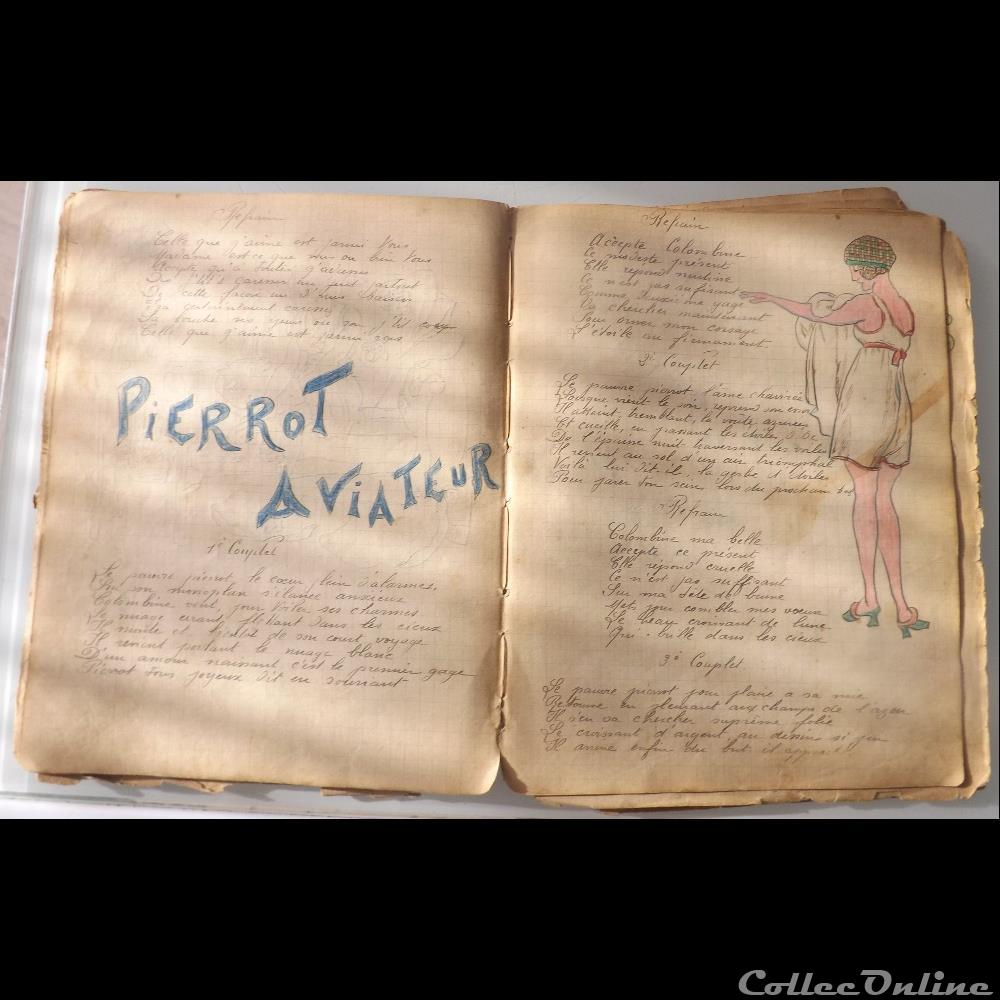 Refrain
Celle que j'aime est parmi vous
Madame est ce que ou bien vous
qu'à
un petit partout
De cette façon
gentiment
La bouche vos yeux
Celle que j'aime est parmi vous
PIERROT
AVIATEUR
1º Couplet
Le pauvre pierrot le cœur plein d'alarmes
Sur son monoplan s'élance anxieux
Colombine veut pour voiler ses charmes
Le nuage errant flottant dans les cieux
Il monte et de son court voyage
Il revient portant le nuage blanc
D'un amour naissant c'est le premier gage
Pierrot tous joyeux dit en souriant
Refrain
Accepte Colombine
Ce modeste présent
Elle répond mutine
Ce n'est pas suffisant
Comme deuxième gage
Va chercher maintenant
Pour orner mon corsage
L'étoile au firmament
2º Couplet
Le pauvre pierrot l'âme chavirée
Lorsque vient le soir, reprend son essor
Il atteint, tremblant, la voûte azurée
Et cueille, en passant les étoiles d'or
De l'épaisse nuit traversant les voiles
Il revient au sol d'un air triomphal
Voilà lui dit-il, la gerbe d'étoiles
Pour parer ton sein lors du prochain bal
Refrain
Colombine ma belle
Accepte ce présent
Elle répond cruelle
Ce n'est pas suffisant
Sur ma tête de brune
Mets pour combler mes voeux
Le beau croissant de lune
Qui brille dans les cieux
3º Couplet
Le pauvre pierrot pour plaire a sa mie
Retourne en pleurant aux champs de l'azur
Il s'en va chercher suprême folie
Le croissant d'argent, au dessin si pur
Il arrive enfin du but il
ColleeOnline